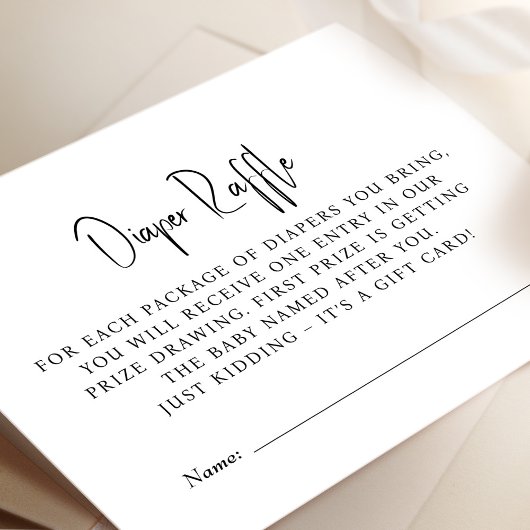 Diaper Raffle
FOR EACH PACKAGE OF DIAPERS YOU BRING,
YOU WILL RECEIVE ONE ENTRY IN OUR
PRIZE DRAWING. FIRST PRIZE IS GETTING
THE BABY NAMED AFTER YOU.
JUST KIDDING – IT'S A GIFT CARD!
Name: